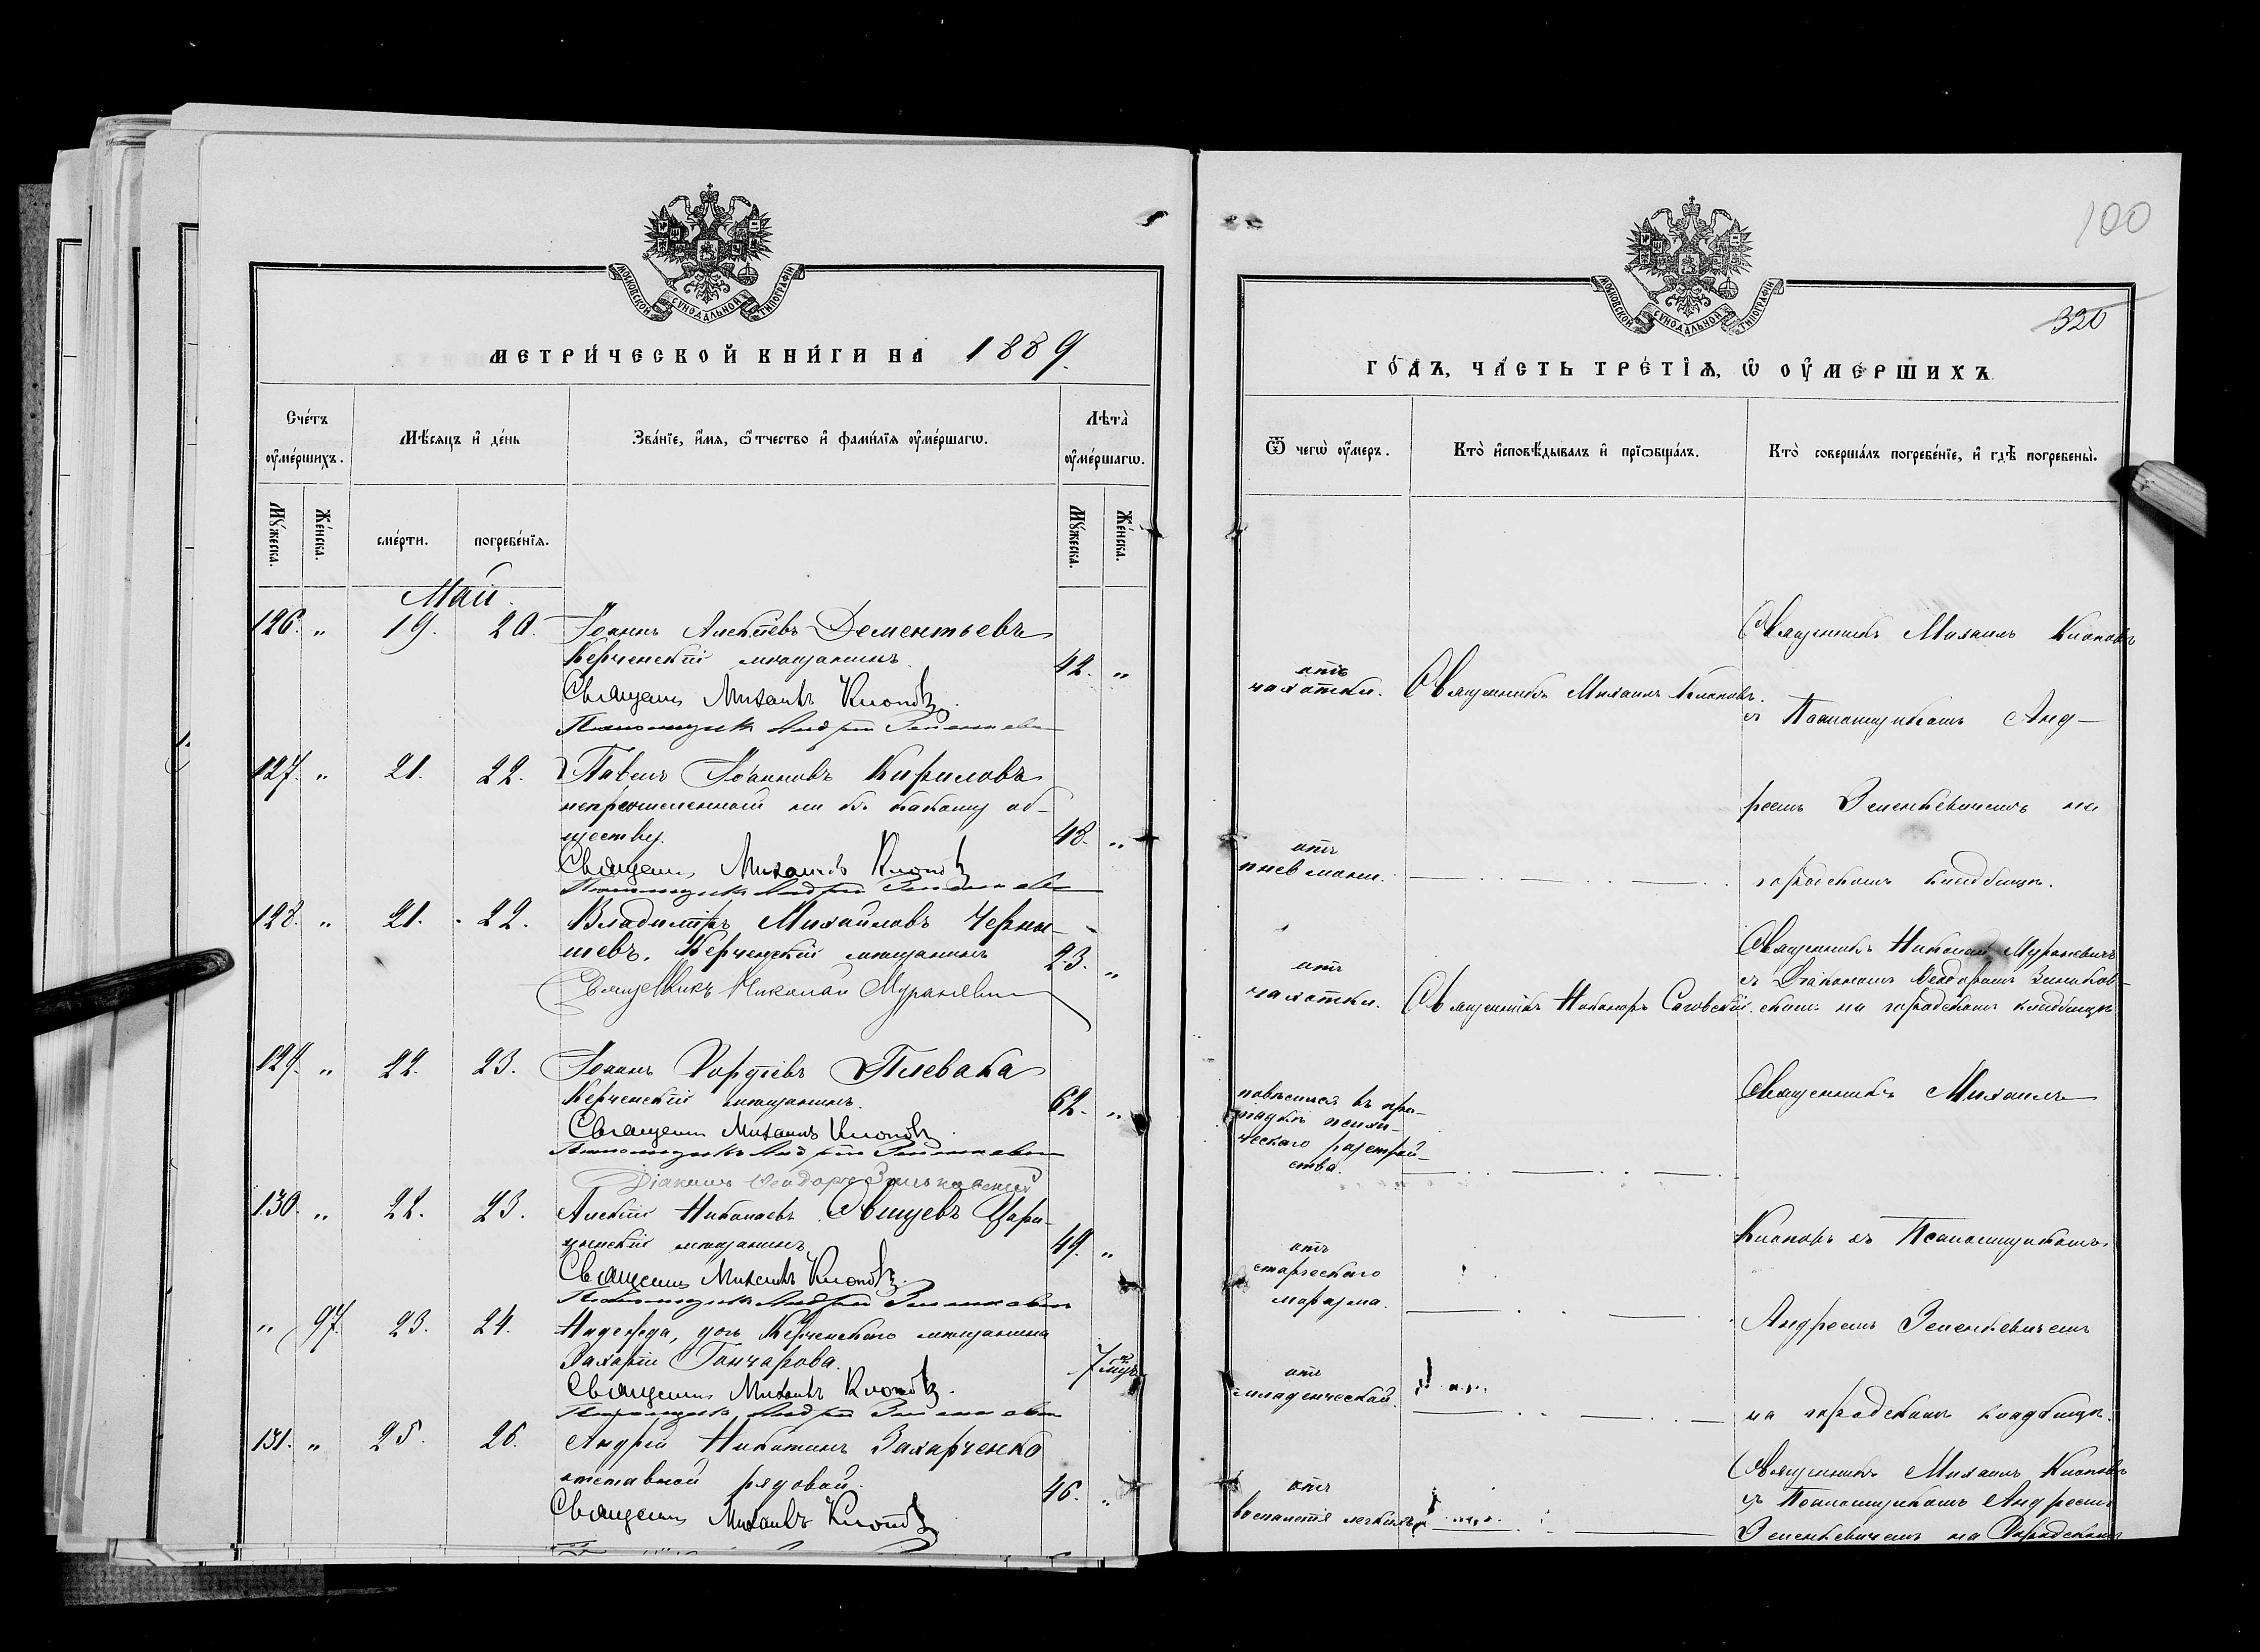 МОСКОВСКОЙ СѴНОДАЛЬНОЙ ТИПОГРАФІИ
МЕТРИ́ЧЕСКОЙ КНИ́ГИ НА 1889.
Сче́тъ оу҆ме́ршихъ.
Мѣ́сяцъ и҆ де́нь
Зва́нїе, и҆́мѧ, ѻ҆́тчество и҆ фами́лїѧ оу҆ме́ршагѡ.
Лѣта̀ оу҆ме́ршагѡ.
Мꙋ́жеска.
Же́нска.
сме́рти.
погребе́нїѧ.
Мꙋ́жеска.
Же́нска.
Май.
126. " 19. 20. Іоаннъ Алексѣевъ Дементьевъ
Керченскій мѣщанинъ. 42. "
Священ Михаилъ Клоповъ.
Псаломщикъ Андрей Зеленкевич
127. " 21. 22. Павелъ Іоанновъ Кириловъ
непричисленный ни къ какому об-
ществу. 48. "
Священ Михаилъ Клоповъ
Псаломщикъ Андрей Зеленкевич
128. " 21. 22. Владиміръ Михайловъ Черны-
шевъ, Керченскій мѣщанинъ 23. "
Священникъ Николай
129. " 22. 23. Іоаннъ Плевака
Керченскій мѣщанинъ. 62. "
Священ Михаилъ Клоповъ.
Псаломщикъ Андрей Зеленкевич
Діаконъ Ѳеодоръ
130. " 22. 23. Алексій Николаевъ Цари-
цынскій мѣщанинъ 49. "
Священ Михаилъ Клоповъ.
Псаломщикъ Андрей Зеленкевич
" 97. 23. 24. Надежда, дочь Керченскаго мѣщанина
Захарія Гончарова. 7 мцъ
Священ Михаилъ Клоповъ.
Псаломщикъ Андрей Зеленкевич
131. " 25. 26. Андрей Никитинъ Захарченко
отставной рядовой. 46. "
Священ Михаилъ Клоповъ
100
320
МОСКОВСКОЙ СѴНОДАЛЬНОЙ ТИПОГРАФІИ
ГО́ДЪ, ЧА́СТЬ ТРЕ́ТЇѦ, Ѡ҆ ОУ҆МЕ́РШИХЪ
Ѿ чегѡ̀ оу҆́меръ.
Кто̀ и҆сповѣ́дывалъ и҆ прїѡбща́лъ.
Кто̀ соверша́лъ погребе́нїе, и҆ гдѣ̀ погребены̀.
отъ
чахотки. Священникъ Михаилъ Клоповъ.
Священникъ Михаилъ Клоповъ
съ Псаломщикомъ Анд-
реемъ Зеленкевичемъ на
городскомъ кладбищѣ.
отъ
пневмоніи.
отъ
чахотки. Священникъ Никаноръ
Священникъ Николай
съ Діакономъ Ѳеодоромъ
скимъ на городскомъ кладбищѣ
повѣсился въ при-
падкѣ психи-
ческаго разстрой-
ства.
Священникъ Михаилъ
Клоповъ съ Псаломщикомъ
Андреемъ Зеленкевичемъ
на городскомъ кладбищѣ.
отъ
старческаго
маразма.
отъ
младенческой.
отъ
воспаленія легкихъ
Священникъ Михаилъ Клоповъ
съ Псаломщикомъ Андреемъ
Зеленкевичемъ на Городскомъ